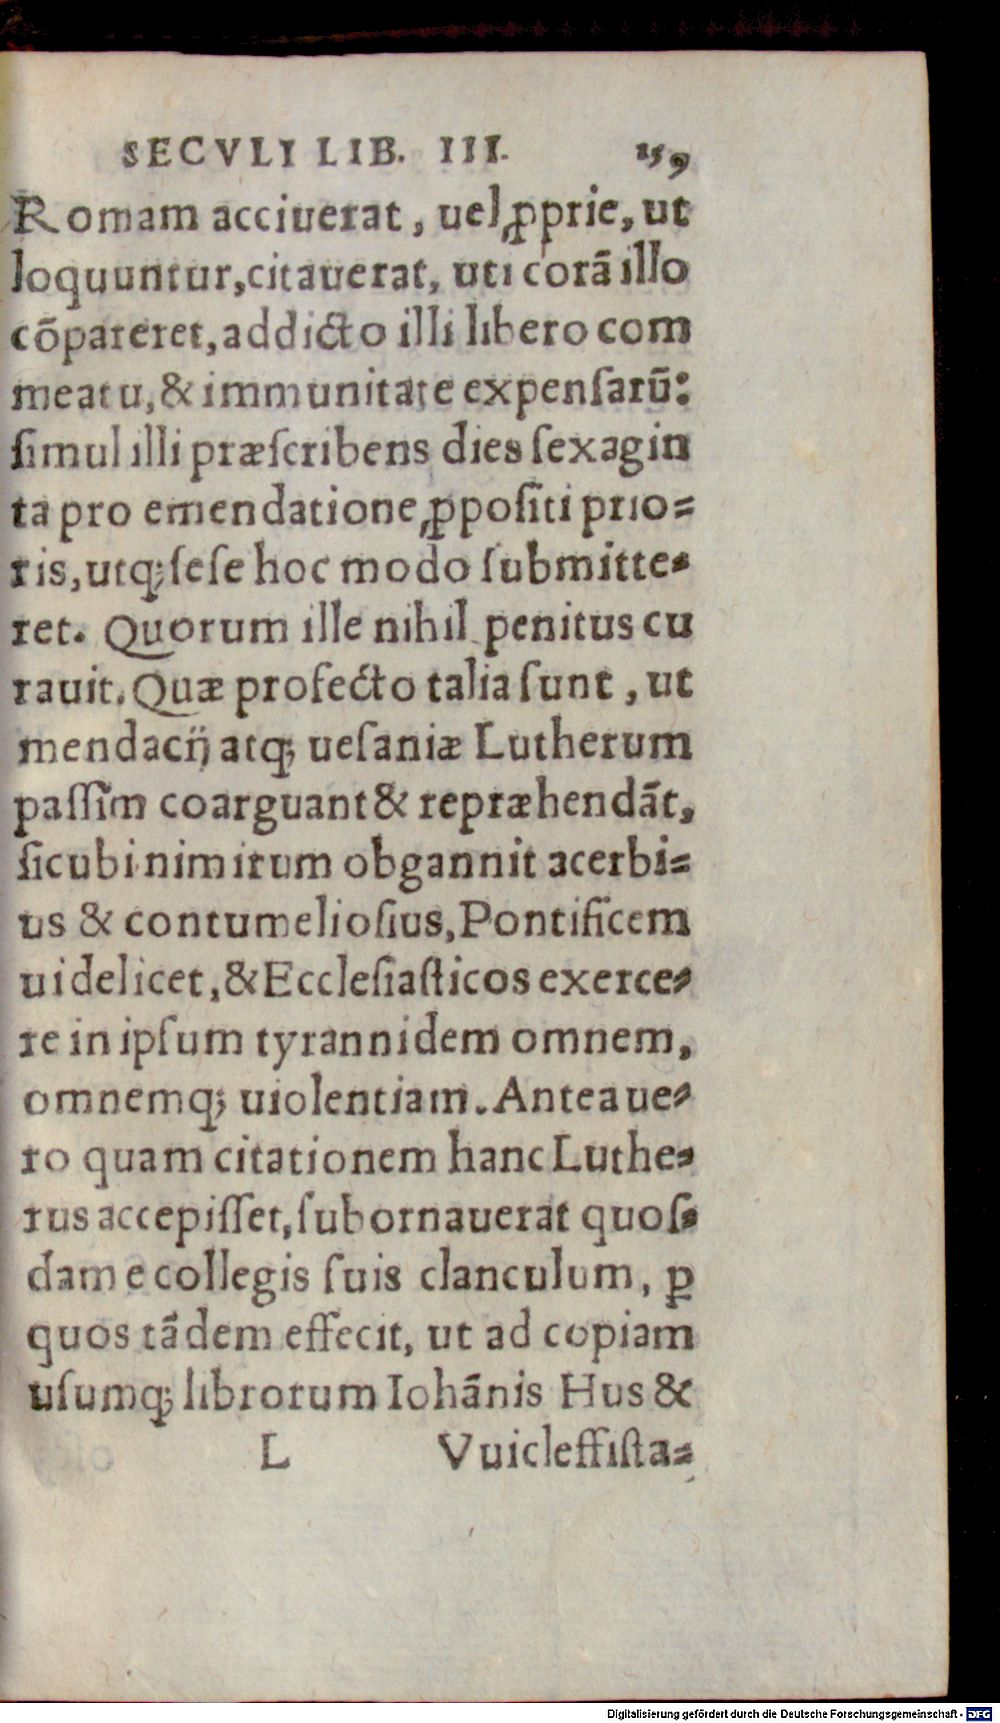 SECVLI LIB. III. 159
Romam acciuerat, uel ꝓprie, ut
loquuntur, citauerat, uti corã illo
cõpareret, addicto illi libero com
meatu, & immunitate expenſarũ:
ſimul illi præſcribens dies ſexagin
ta pro emendatione ꝓpoſiti prio⸗
ris, utq; ſeſe hoc modo ſubmitte⸗
ret. Quorum ille nihil penitus cu
rauit. Quæ profecto talia ſunt, ut
mendacij atq; ueſaniæ Lutherum
paſſim coarguant & repræhendãt,
ſicubi nimirum obgannit acerbi⸗
us & contumelioſius, Pontificem
uidelicet, & Eccleſiaſticos exerce⸗
re in ipſum tyrannidem omnem,
omnemq; uiolentiam. Antea ue⸗
ro quam citationem hanc Luthe⸗
rus accepiſſet, ſubornauerat quoſ⸗
dam e collegis ſuis clanculum, ꝑ
quos tãdem effecit, ut ad copiam
uſumq; librorum Iohãnis Hus &
L Vuicleffiſta⸗
Digitalisierung gefördert durch die Deutsche Forschungsgemeinschaft - DFG